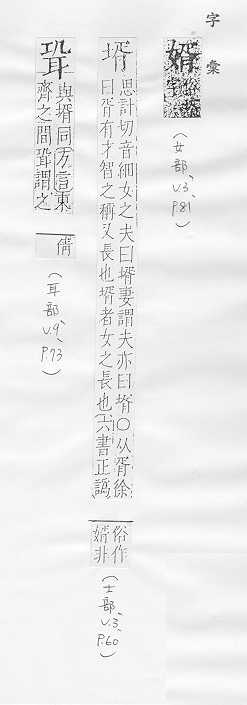 字彙
婿
(女部、V.3、P.81)
壻 思計切音細女之夫曰壻妻謂夫亦曰壻〇从胥徐
曰胥有才智之稱又長也壻者女之長也六書正譌
俗作
婿非
(士部、V.3、P.60)
聟 與壻同方言東
齊之間聟謂之
倩
(耳部、V.9、P.73)